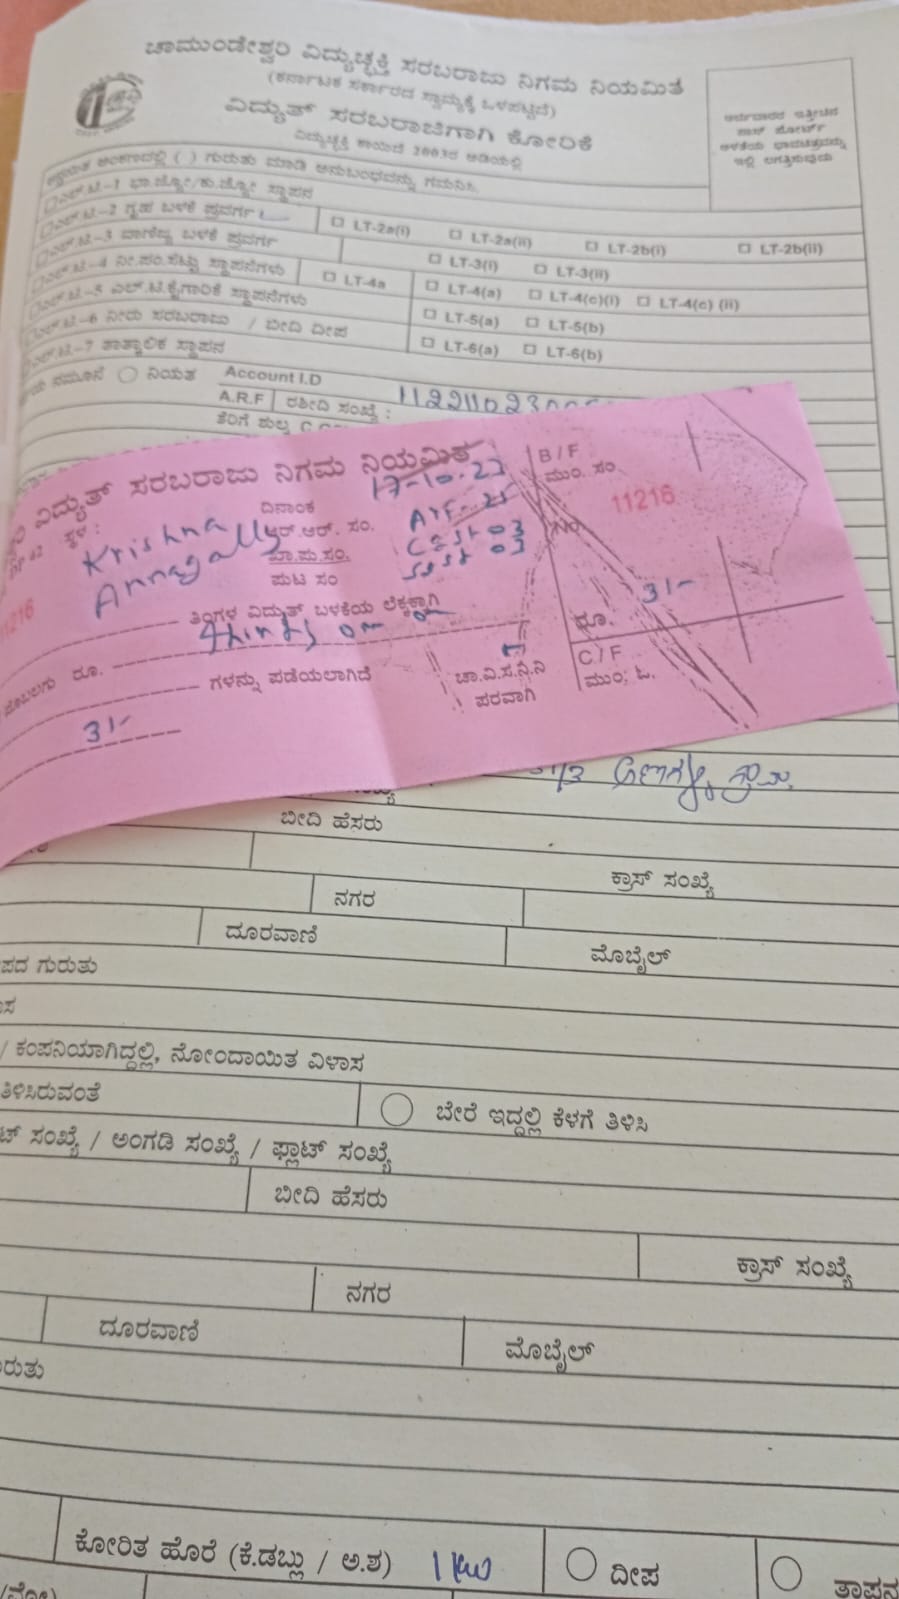 ಚಾಮುಂಡೇಶ್ವರಿ ವಿದ್ಯುಚ್ಛಕ್ತಿ ಸರಬರಾಜು ನಿಗಮ ನಿಯಮಿತ
(ಕರ್ನಾಟಕ ಸರ್ಕಾರದ ಸ್ವಾಮ್ಯಕ್ಕೆ ಒಳಪಟ್ಟಿದೆ)
ವಿದ್ಯುತ್ ಸರಬರಾಜಿಗಾಗಿ ಕೋರಿಕೆ
ವಿದ್ಯುಚ್ಛಕ್ತಿ ಕಾಯಿದೆ 2003ರ ಅಡಿಯಲ್ಲಿ
ಅರ್ಜಿದಾರರ ಇತ್ತೀಚಿನ
ಪಾಸ್ ಪೋರ್ಟ್
ಅಳತೆಯ ಭಾವಚಿತ್ರವನ್ನು
ಇಲ್ಲಿ ಲಗತ್ತಿಸುವುದು
ಅಂಕಣದಲ್ಲಿ ( ) ಗುರುತು ಮಾಡಿ ಅನುಬಂಧವನ್ನು ಗಮನಿಸಿ
ಎಲ್.ಟಿ.-1 ಭಾ.ಜ್ಯೋ/ಕು.ಜ್ಯೋ ಸ್ಥಾಪನ
ಎಲ್.ಟಿ.-2 ಗೃಹ ಬಳಕೆ ಪ್ರವರ್ಗ LT-2a(i) LT-2a(ii) LT-2b(i) LT-2b(ii)
ಎಲ್.ಟಿ.-3 ವಾಣಿಜ್ಯ ಬಳಕೆ ಪ್ರವರ್ಗ LT-3(i) LT-3(ii)
ಎಲ್.ಟಿ.-4 ನೀ.ಪಂ.ಸೆಟ್ಟು ಸ್ಥಾಪನೆಗಳು LT-4a LT-4(a) LT-4(c)(i) LT-4(c) (ii)
ಎಲ್.ಟಿ.-5 ಎಲ್.ಟಿ.ಕೈಗಾರಿಕೆ ಸ್ಥಾಪನೆಗಳು LT-5(a) LT-5(b)
ಎಲ್.ಟಿ.-6 ನೀರು ಸರಬರಾಜು / ಬೀದಿ ದೀಪ LT-6(a) LT-6(b)
ಎಲ್.ಟಿ.-7 ತಾತ್ಕಾಲಿಕ ಸ್ಥಾಪನ
ನಮೂನೆ ನಿಯತ Account I.D
A.R.F ರಶೀದಿ ಸಂಖ್ಯೆ :
ವಿದ್ಯುತ್ ಸರಬರಾಜು ನಿಗಮ ನಿಯಮಿತ
B / F
ಮುಂ. ಸಂ.
ಸ್ಥಳ : ದಿನಾಂಕ 17-10-23
11216
Krishna ಆರ್.ಆರ್. ಸಂ.
Annagally ಖಾ.ಪು.ಸಂ.
ಪುಟ ಸಂ
No.
11216
ತಿಂಗಳ ವಿದ್ಯುತ್ ಬಳಕೆಯ ಲೆಕ್ಕಕ್ಕಾಗಿ
ರೂ. 31/-
ಮೊಬಲಗು ರೂ. thirty one
C / F
ಮುಂ. ಓ.
ಗಳನ್ನು ಪಡೆಯಲಾಗಿದೆ ಚಾ.ವಿ.ಸ.ನಿ.ನಿ
ಪರವಾಗಿ
31/-
ಬೀದಿ ಹೆಸರು
ಕ್ರಾಸ್ ಸಂಖ್ಯೆ
ನಗರ
ದೂರವಾಣಿ ಮೊಬೈಲ್
ಪದ ಗುರುತು
/ ಕಂಪನಿಯಾಗಿದ್ದಲ್ಲಿ, ನೋಂದಾಯಿತ ವಿಳಾಸ
ತಿಳಿಸಿರುವಂತೆ ಬೇರೆ ಇದ್ದಲ್ಲಿ ಕೆಳಗೆ ತಿಳಿಸಿ
ಟ್ ಸಂಖ್ಯೆ / ಅಂಗಡಿ ಸಂಖ್ಯೆ / ಫ್ಲಾಟ್ ಸಂಖ್ಯೆ
ಬೀದಿ ಹೆಸರು
ಕ್ರಾಸ್ ಸಂಖ್ಯೆ
ನಗರ
ದೂರವಾಣಿ ಮೊಬೈಲ್
ರುತು
ಕೋರಿತ ಹೊರೆ (ಕೆ.ಡಬ್ಲು / ಅ.ಶ) 1 kw ದೀಪ ತಾಪನ